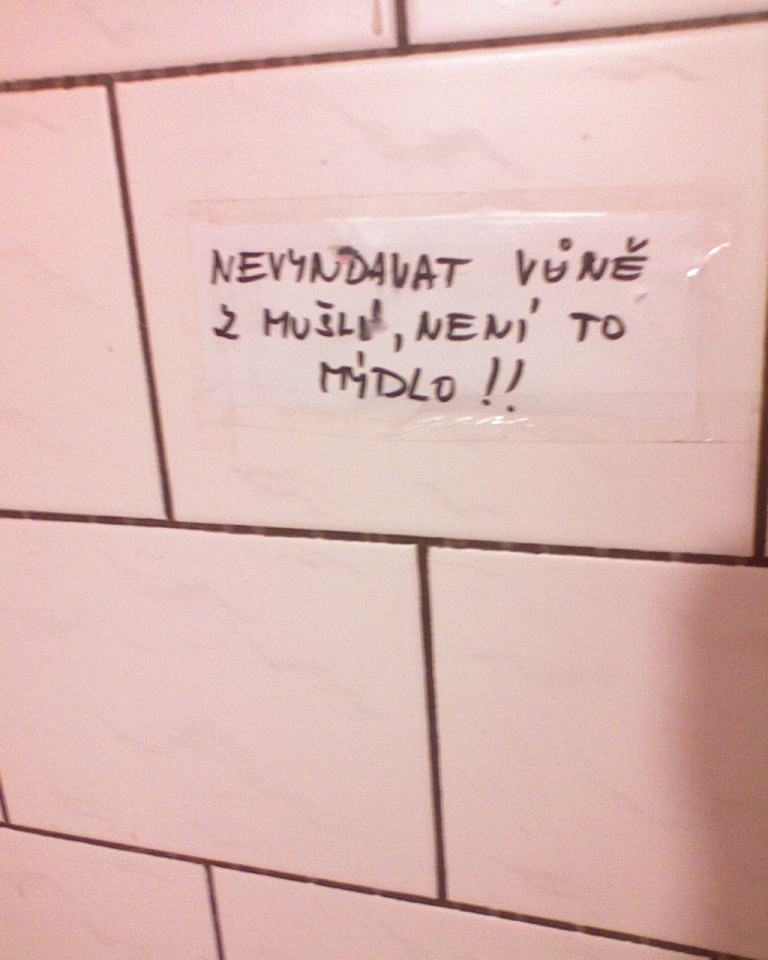 NEVYNDAVAT VŮNĚ
Z MUŠLÍ, NENÍ TO
MÝDLO!!